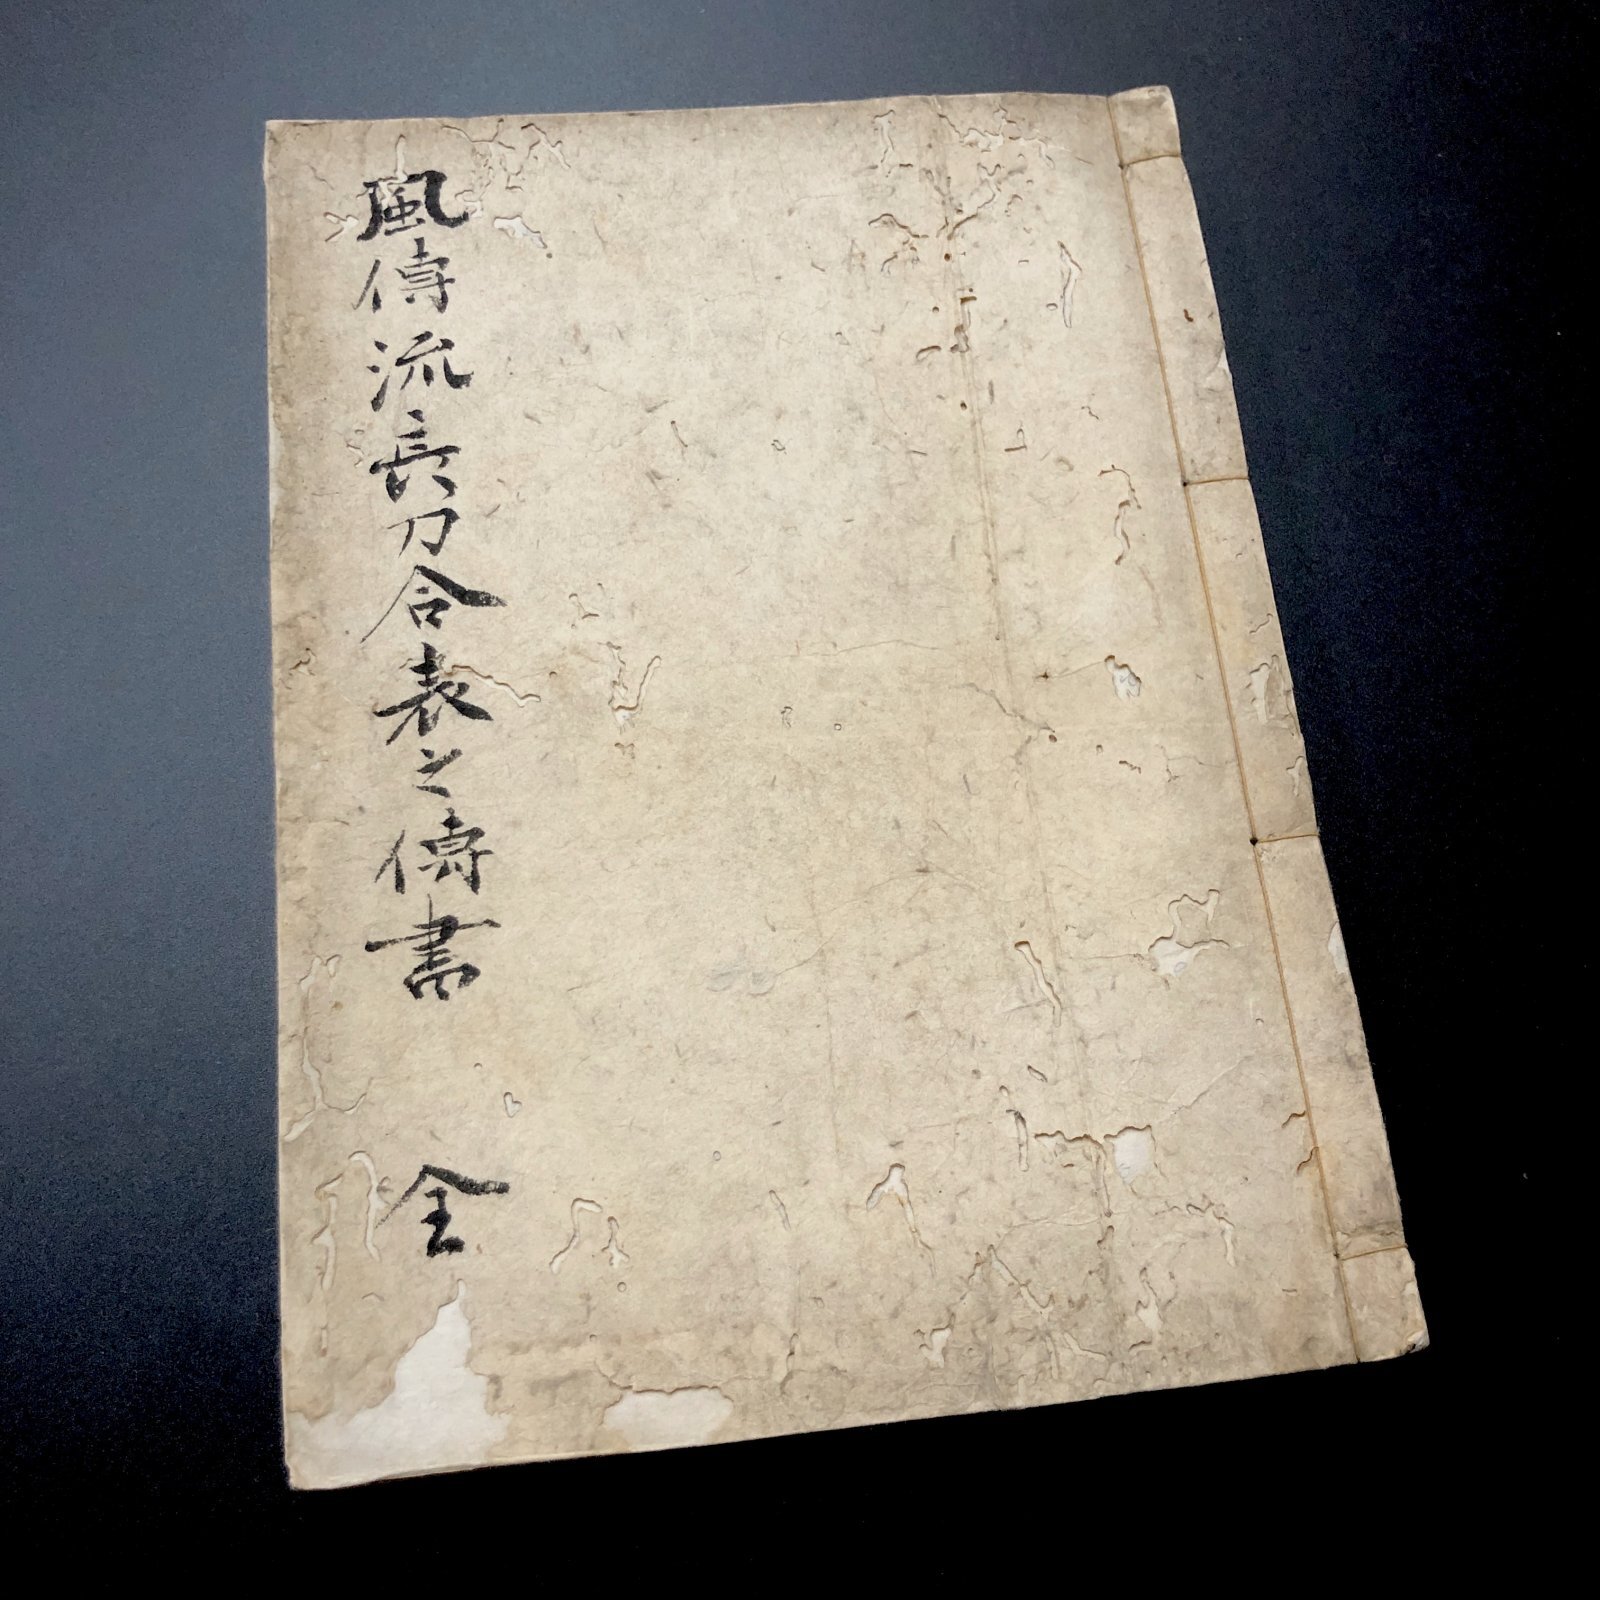 風傳流長刀合表之傳書　全